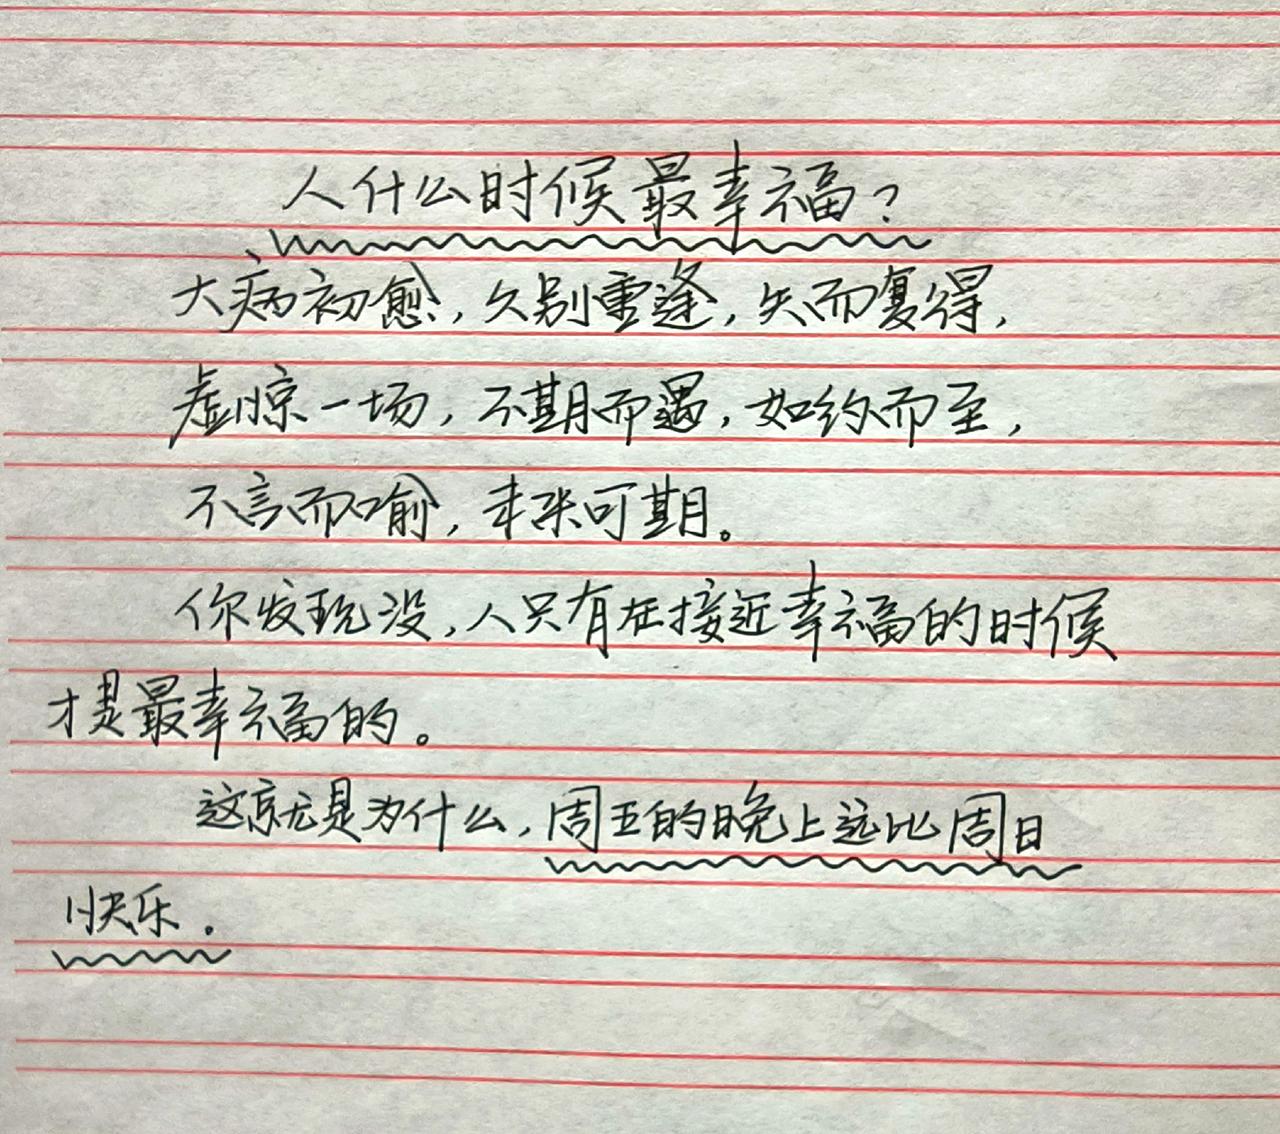 人什么时候最幸福？
大病初愈，久别重逢，失而复得，
虚惊一场，不期而遇，如约而至，
不言而喻，未来可期。
你发现没，人只有在接近幸福的时候
才是最幸福的。
这就是为什么，周五的晚上远比周日
快乐。